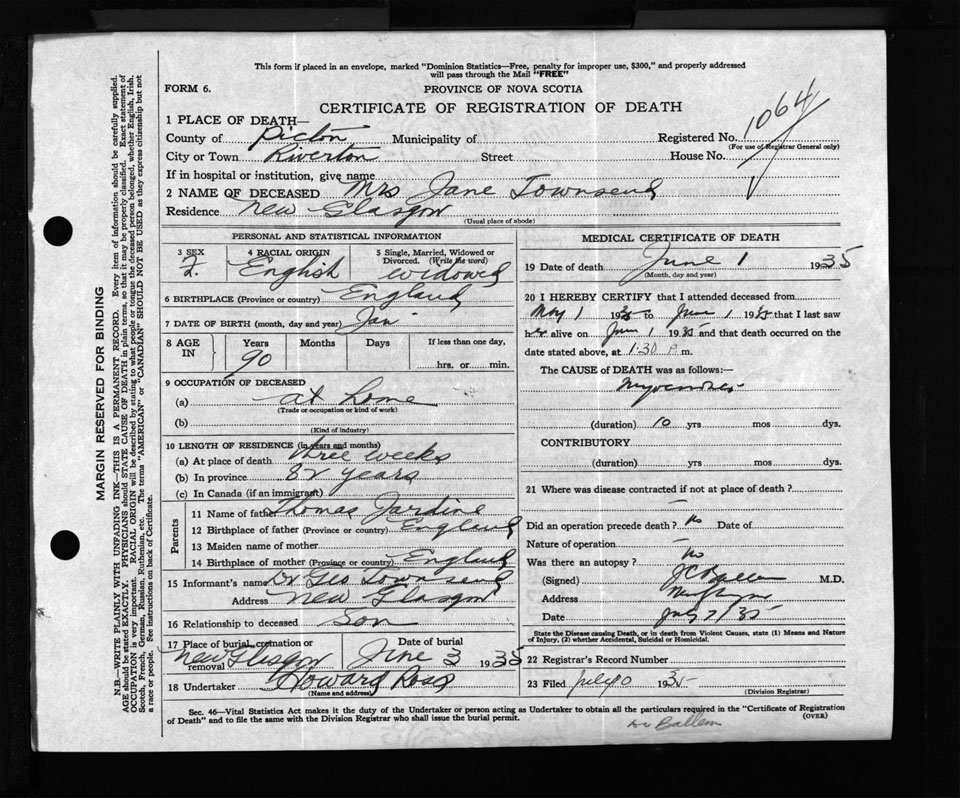 This form if placed in an envelope, marked "Dominion Statistics—Free, penalty for improper use, $300," and properly addressed
will pass through the Mail "FREE"
FORM 6. PROVINCE OF NOVA SCOTIA
CERTIFICATE OF REGISTRATION OF DEATH
1 PLACE OF DEATH—
County of Pictou Municipality of Registered No. 1064
(For use of Registrar General only)
City or Town Riverton Street House No.
If in hospital or institution, give name
2 NAME OF DECEASED Mrs Jane Townsend
Residence New Glasgow
(Usual place of abode)
PERSONAL AND STATISTICAL INFORMATION
3 SEX 4 RACIAL ORIGIN 5 Single, Married, Widowed or
Divorced. (Write the word)
F. English widowed
6 BIRTHPLACE (Province or country) England
7 DATE OF BIRTH (month, day and year) Jan
8 AGE IN Years Months Days If less than one day,
90 hrs. or min.
9 OCCUPATION OF DECEASED
(a) at home
(Trade or occupation or kind of work)
(b)
(Kind of industry)
10 LENGTH OF RESIDENCE (in years and months)
(a) At place of death three weeks
(b) In province 82 years
(c) In Canada (if an immigrant)
Parents
11 Name of father Thomas Jardine
12 Birthplace of father (Province or country) England
13 Maiden name of mother
14 Birthplace of mother (Province or country) England
15 Informant's name Dr Geo Townsend
Address New Glasgow
16 Relationship to deceased Son
17 Place of burial, cremation or removal New Glasgow Date of burial June 3 1935
18 Undertaker Howard Ross
(Name and address)
MEDICAL CERTIFICATE OF DEATH
19 Date of death June 1 1935
(Month, day and year)
20 I HEREBY CERTIFY that I attended deceased from
May 1 1935 to June 1 1935 that I last saw
her alive on June 1 1935 and that death occurred on
date stated above, at 1.30 P. m.
The CAUSE of DEATH was as follows:—
(duration) 10 yrs mos dys.
CONTRIBUTORY
(duration) yrs mos dys.
21 Where was disease contracted if not at place of death?
—
Did an operation precede death? No Date of
Nature of operation —
Was there an autopsy? No
(Signed) J C Ballem M.D.
Address New Glasgow
Date July 7/35
State the Disease causing Death, or in death from Violent Causes, state (1) Means and Nature
of Injury, (2) whether Accidental, Suicidal or Homicidal.
22 Registrar's Record Number
23 Filed July 10 1935
(Division Registrar)
Sec. 46—Vital Statistics Act makes it the duty of the Undertaker or person acting as Undertaker to obtain all the particulars required in the "Certificate of Registration
of Death" and to file the same with the Division Registrar who shall issue the burial permit. (OVER)
Dr Ballem
MARGIN RESERVED FOR BINDING
N.B.—WRITE PLAINLY WITH UNFADING INK—THIS IS A PERMANENT RECORD. Every item of information should be carefully supplied.
AGE should be stated EXACTLY. PHYSICIANS should STATE CAUSE OF DEATH in plain terms, so that it may be properly classified. Exact statement of
OCCUPATION is very important. RACIAL ORIGIN will be described by stating to what people or tongue the deceased person belonged, whether English, Irish,
Scotch, French, German, Russian, Ruthenian, etc. The terms "AMERICAN" or "CANADIAN" SHOULD NOT BE USED as they express citizenship but not
a race or people. See instructions on back of Certificate.